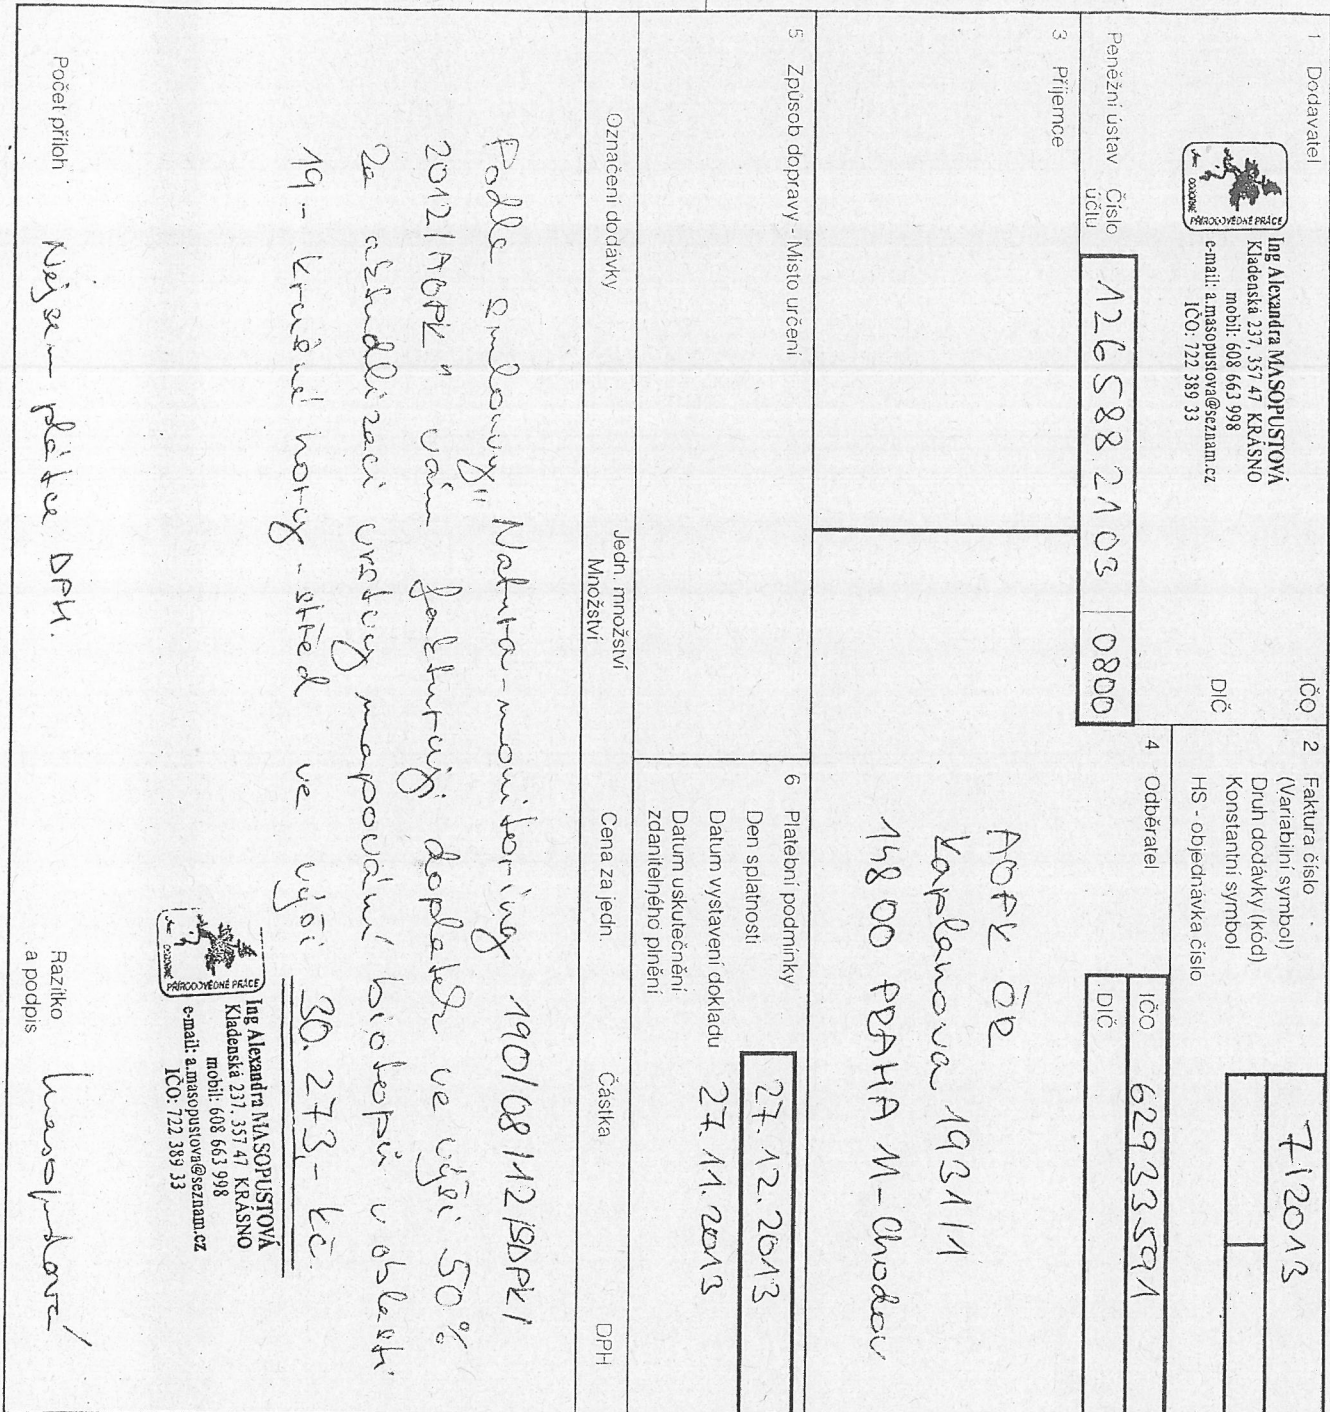 1 Dodavatel
IČO
PŘÍRODOVĚDNÉ PRÁCE
Ing Alexandra MASOPUSTOVÁ
Kladenská 237, 357 47 KRÁSNO
mobil: 608 663 998
e-mail: a.masopustova@seznam.cz
IČO: 722 389 33
DIČ
Peněžní ústav Číslo účtu
1265882103 0800
2 Faktura číslo
(Variabilní symbol)
7/2013
Druh dodávky (kód)
Konstantní symbol
HS - objednávka číslo
3 Příjemce
4 Odběratel
IČO 62933591
DIČ
AOPK ČR
Kaplanova 1931/1
148 00 PRAHA 11-Chodov
5 Způsob dopravy - Místo určení
6 Platební podmínky
Den splatnosti 27.12.2013
Datum vystavení dokladu 27.11.2013
Datum uskutečnění
zdanitelného plnění
Označení dodávky
Jedn. množství
Množství
Cena za jedn.
Částka
DPH
Podle smlouvy "Natura-monitoring 190/08/12/SOPK/
2012/AOPK" vám fakturuji doplatek ve výši 50%
za aktualizaci vrstvy mapování biotopů v oblasti
19 - krušné hory - střed ve výši 30.273,- kč.
PŘÍRODOVĚDNÉ PRÁCE
Ing Alexandra MASOPUSTOVÁ
Kladenská 237, 357 47 KRÁSNO
mobil: 608 663 998
e-mail: a.masopustova@seznam.cz
IČO: 722 389 33
Počet příloh
Nejsem plátce DPH.
Razítko
a podpis
Masopustová